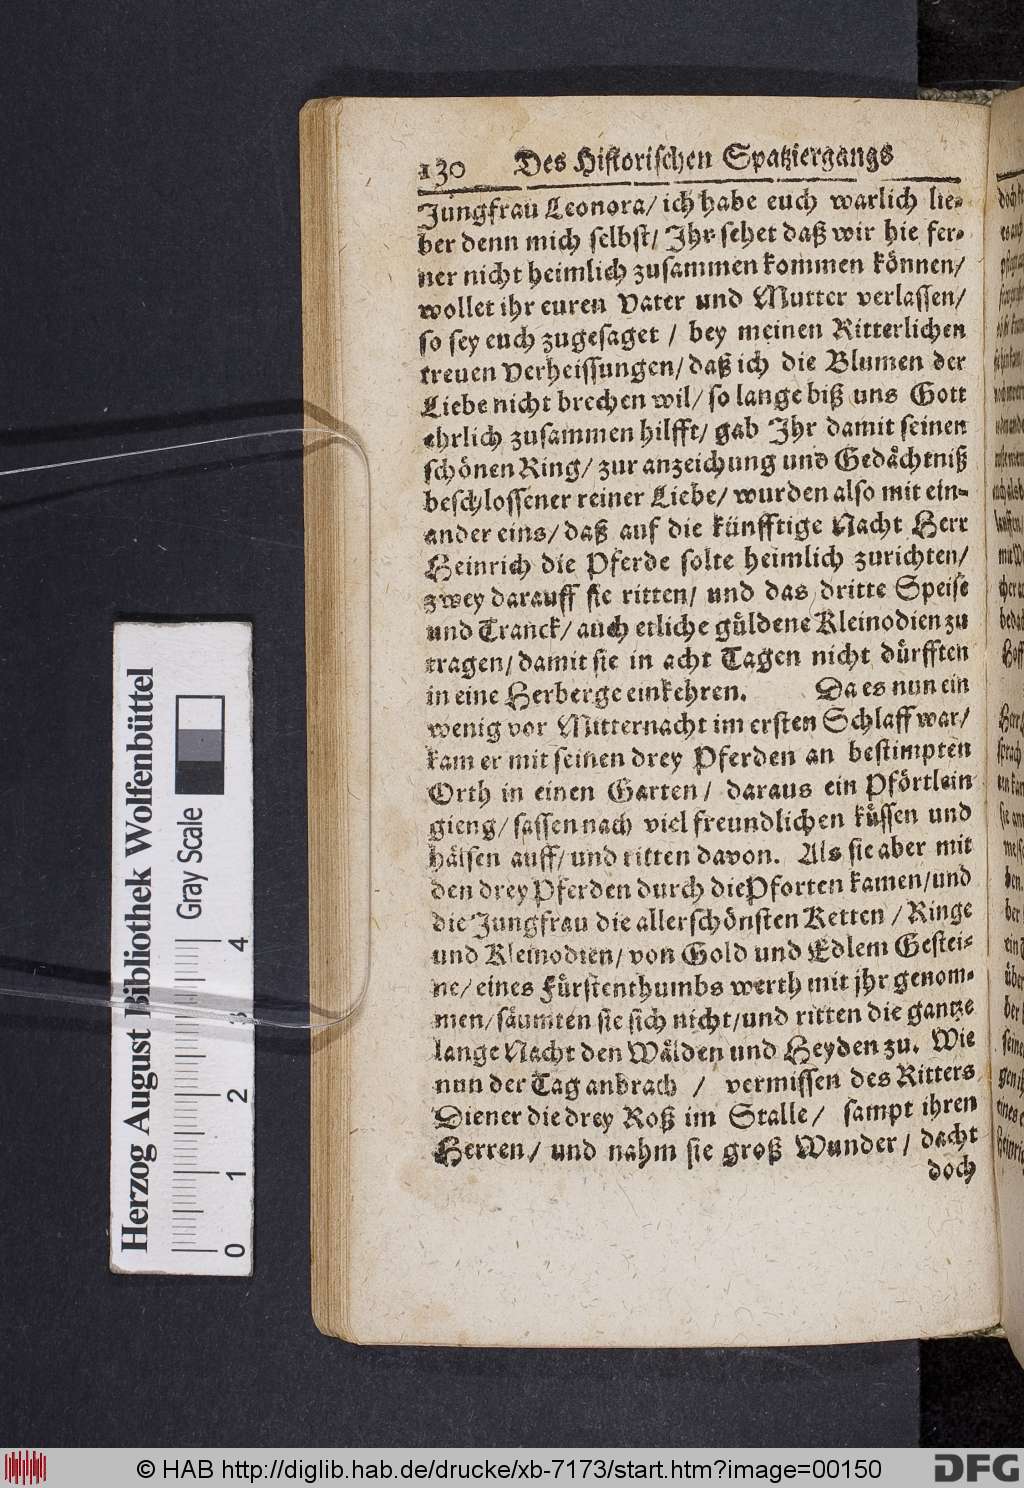 130 Des Historischen Spatziergangs
Jungfrau Leonora/ ich habe euch warlich lie-
ber denn mich selbst/ Ihr sehet daß wir hie fer-
ner nicht heimlich zusammen kommen können/
wollet ihr euren Vater und Mutter verlassen/
so sey euch zugesaget / bey meinen Ritterlichen
treuen Verheissungen/ daß ich die Blumen der
Liebe nicht brechen wil/ so lange biß uns Gott
ehrlich zusammen hilfft/ gab Ihr damit seinen
schönen Ring/ zur anzeichung und Gedächtniß
beschlossener reiner Liebe/ wurden also mit ein-
ander eins/ daß auf die künfftige Nacht Herr
Heinrich die Pferde solte heimlich zurichten/
zwey darauff sie ritten/ und das dritte Speise
und Tranck/ auch etliche güldene Kleinodien zu
tragen/ damit sie in acht Tagen nicht dürfften
in eine Herberge einkehren. Da es nun ein
wenig vor Mitternacht im ersten Schlaff war/
kam er mit seinen drey Pferden an bestimpten
Orth in einen Garten / daraus ein Pförtlein
gieng/ sassen nach viel freundlichen küssen und
hälsen auff/ und ritten davon. Als sie aber mit
den drey Pferden durch die Pforten kamen/ und
die Jungfrau die allerschönsten Ketten / Ringe
und Kleinodien/ von Gold und Edlem Gestei-
ne/ eines Fürstenthumbs werth mit jhr genom-
men/ säumten sie sich nicht/ und ritten die gantze
lange Nacht den Wälden und Heyden zu. Wie
nun der Tag anbrach / vermissen des Ritters
Diener die drey Roß im Stalle / sampt ihren
Herren / und nahm sie groß Wunder / dacht
doch
Herzog August Bibliothek Wolfenbüttel
Gray Scale
0 1 2 3 4
© HAB http://diglib.hab.de/drucke/xb-7173/start.htm?image=00150
DFG